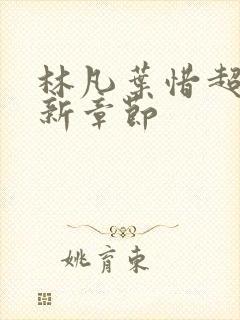 林凡葉惜超
新章節
姚育東